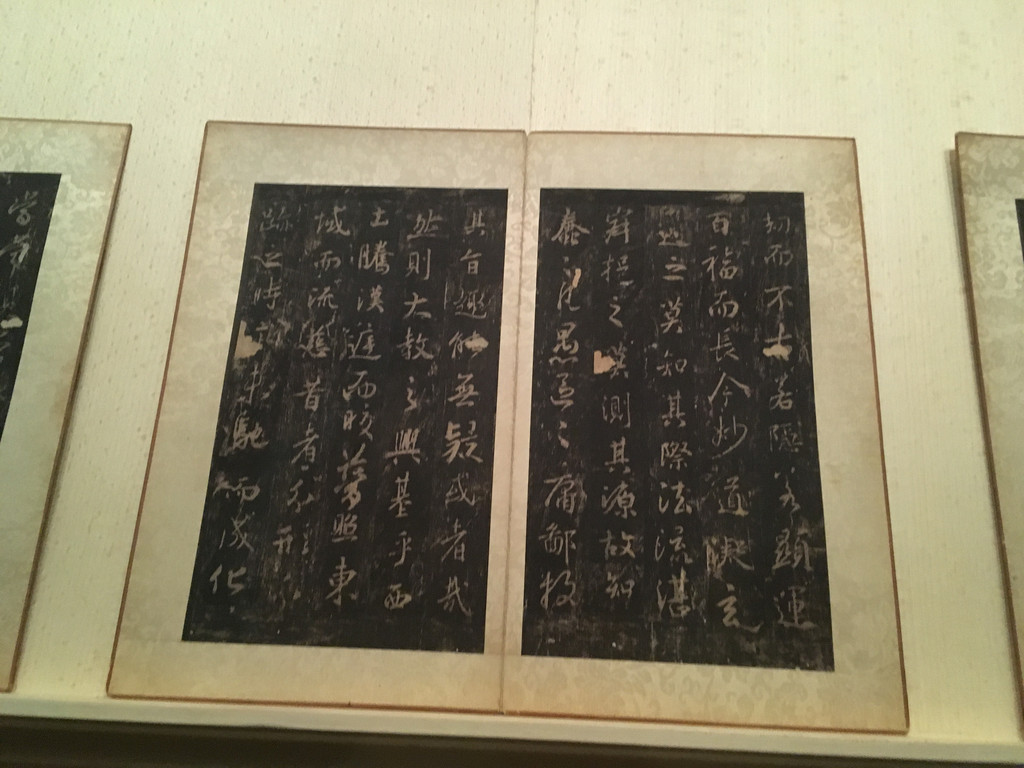 劫而不古若隱若顯運
百福而長今妙道凝玄
遵之莫知其際法流湛
寂挹之莫測其源故知
蠢々凡愚區々庸鄙投
其旨趣能無疑或者哉
然則大教之興基乎西
土騰漢庭而皎夢照東
域而流慈昔者分形分
跡之時言未馳而成化
當常